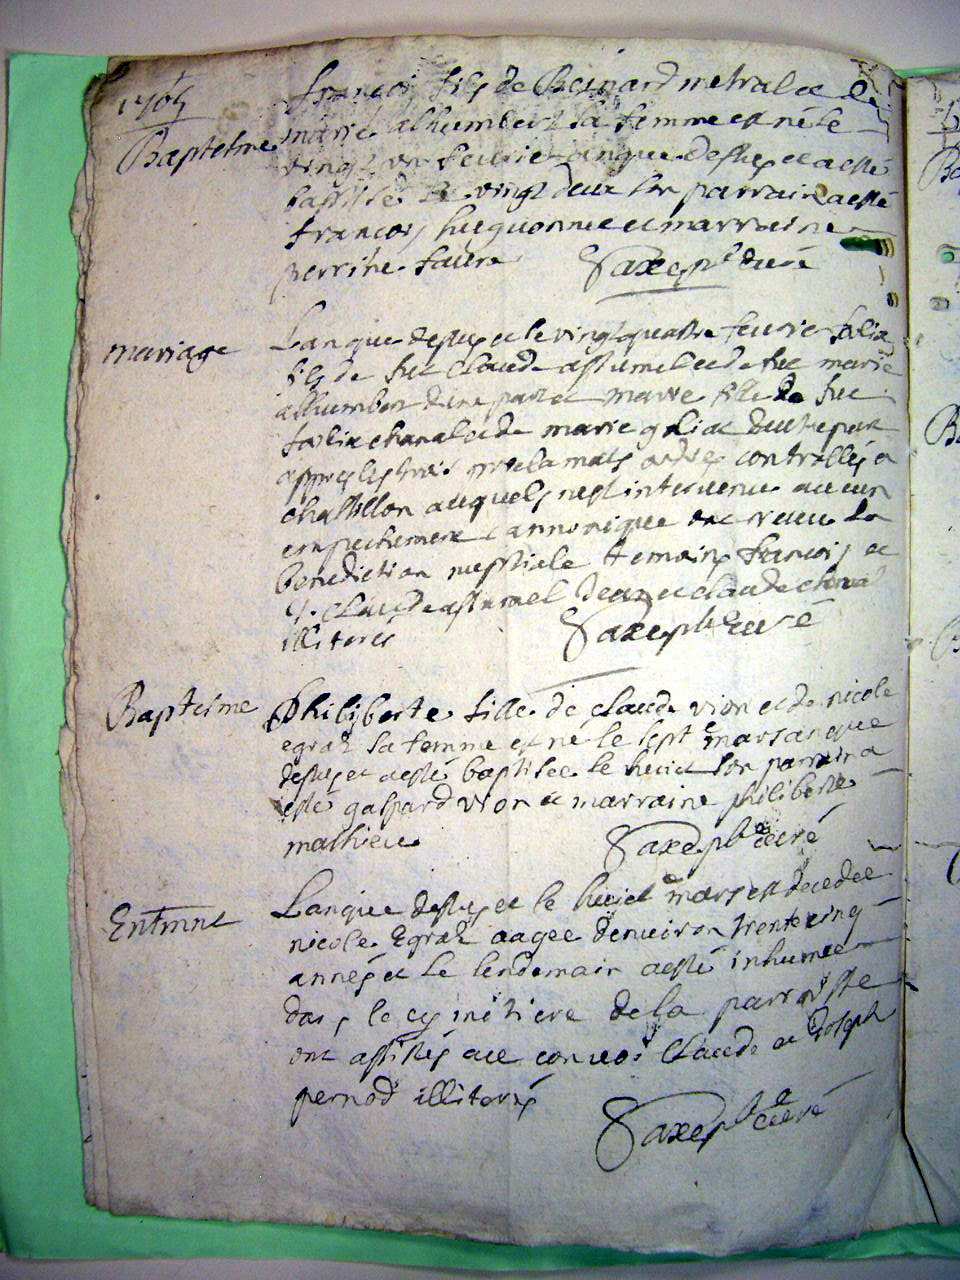 1705
Baptesme
francois fils de Bernard metral et de
marie alhumbert sa femme est né le
vingt un feurier anque dessus et a esté
baptisé le vingt deux son parrain a esté
francois huguonnie et marraine
perrine faure Saxe pbre curé
mariage
Lanque dessus et le vingt quatre feurier
fils de feu claude assumel et de feu marie
alhumbert dune part et marie fille de feu
et de marie dautre part
appres les trois proclamats controllés a
chastillon auquels nest interuenu aucun
empechement cannonique ont receu la
benediction nuptiale temoins francois et
claude assumel et claude
illiteres Saxe pbre curé
Baptesme
Philiberte fille de claude vion et de nicole
egraz sa femme est ne le sept mars anque
dessus et a esté baptisee le huict son parrain a
esté gaspard vion et marraine philiberte
mathieu Saxe pbre curé
Entmnt
Lanque dessus et le huict mars est decedee
nicole Egraz aagee denuiron trente cinq
annés et le lendemain a esté inhumee
dans le cymetiere de la parroisse
ont assistés au conuoi claude et Joseph
pernod illiterés
Saxe pbre curé